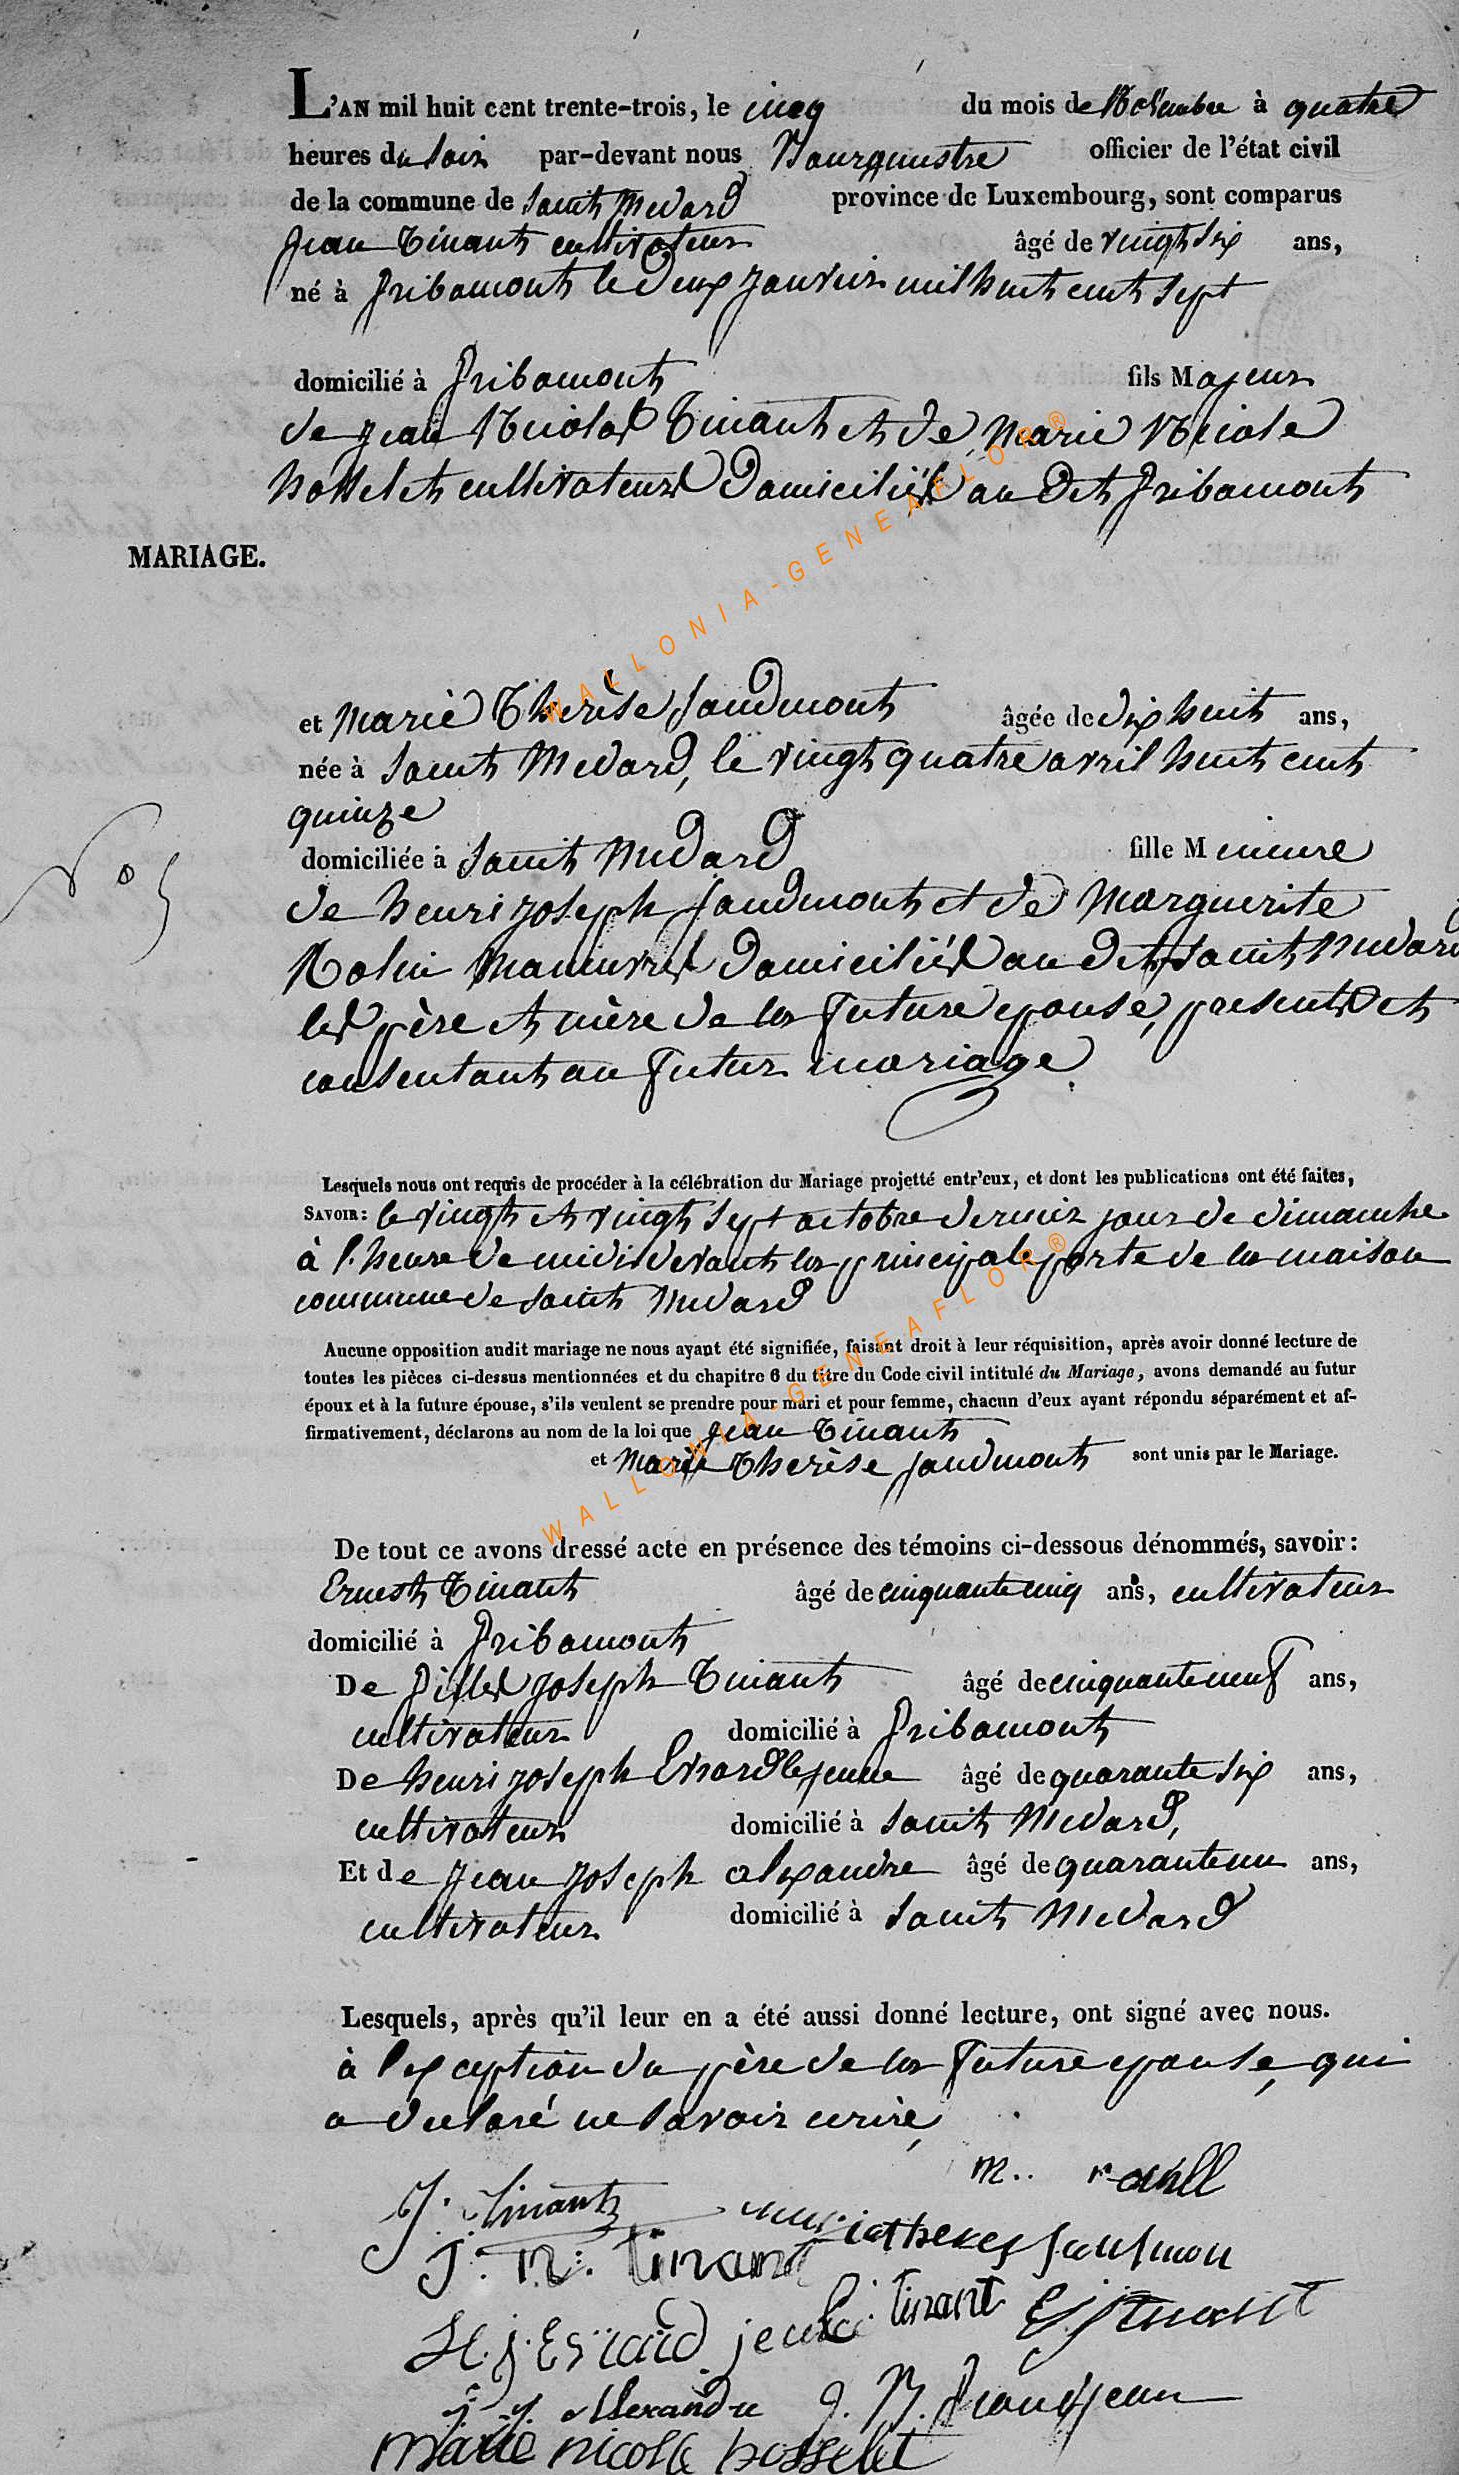 L'AN mil huit cent trente-trois, le cinq du mois de Novembre à quatre
heures du soir par-devant nous Bourgmestre officier de l'état civil
de la commune de Saint Medard province de Luxembourg, sont comparus
Jean Tinant cultivateur âgé de vingt six ans,
né à Pribamont le deux janvier mil huit cent sept
domicilié à Pribamont fils Majeur
de Jean Nicolas Tinant et de Marie Nicole
hosselet cultivateurs domiciliés au dit Pribamont
MARIAGE.
et Marie Therèse Jaudmont âgée de dix huit ans,
née à Saint Medard, le vingt quatre avril huit cent
quinze
domiciliée à Saint Medard fille Mineure
de henri joseph Jaudmont et de Marguerite
Rolin Maneuvres domiciliés au dit Saint Medard
les père et mère de la future epouse, presents et
consentant au futur mariage
N° 5
Lesquels nous ont requis de procéder à la célébration du Mariage projetté entr'eux, et dont les publications ont été faites,
SAVOIR: le vingt et vingt sept octobre dernier jour de dimanche
à l'heure de midi devant la principale porte de la maison
commune de Saint Medard
Aucune opposition audit mariage ne nous ayant été signifiée, faisant droit à leur réquisition, après avoir donné lecture de
toutes les pièces ci-dessus mentionnées et du chapitre 6 du titre du Code civil intitulé du Mariage, avons demandé au futur
époux et à la future épouse, s'ils veulent se prendre pour mari et pour femme, chacun d'eux ayant répondu séparément et af-
firmativement, déclarons au nom de la loi que Jean Tinant
et Marie Therèse Jaudmont sont unis par le Mariage.
De tout ce avons dressé acte en présence des témoins ci-dessous dénommés, savoir:
Ernest Tinant âgé de cinquante cinq ans, cultivateur
domicilié à Pribamont
De Gilles joseph Tinant âgé de cinquante neuf ans,
cultivateur domicilié à Pribamont
De henri joseph Evrard le jeune âgé de quarante six ans,
cultivateur domicilié à Saint Medard,
Et de Jean joseph alexandre âgé de quarante un ans,
cultivateur domicilié à Saint Medard
Lesquels, après qu'il leur en a été aussi donné lecture, ont signé avec nous.
à l'exception du père de la future epouse, qui
a declaré ne savoir ecrire,
M..
J. Tinant
J: n: tinant
tinant
J. J. Alexandre
marie nicolle hosselet
WALLONIA-GENEAFLOR®
WALLONIA-GENEAFLOR®